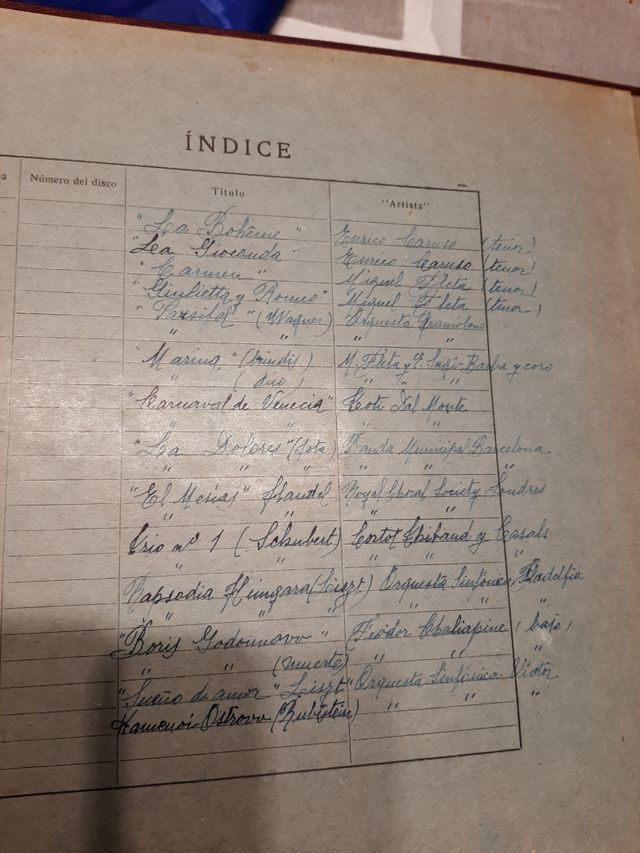 ÍNDICE
Número del disco Título "Artista"
"La Bohême" Enrico Caruso (tenor)
"La Gioconda" Enrico Caruso (tenor)
"Carmen" Miguel Fleta (tenor)
"Giulietta y Romeo" Miguel Fleta (tenor)
"Parsifal" (Wagner) Orquesta Gramófono
" "
"Marina" (brindis) M. Fleta y E. Sagi-Barba y coro
" (duo) " " " "
"Carnaval de Venecia" Toti Dal Monte
" " " "
"La Dolores" (Jota) Banda Municipal Barcelona
" " " " "
"El Mesías" Haendel Royal Choral Society Londres
" " " " "
Trio nº 1 (Schubert) Cortot Thibaud y Casals
" " " " "
Rapsodia Húngara (Liszt) Orquesta Sinfónica Filadelfia
" " " " " "
"Boris Godounovo" Feodor Chaliapine (bajo)
" " (muerte) "
"Sueño de amor" Liszt" Orquesta Sinfónica Victor
Kamenoi Ostrow (Rubistein) " " "